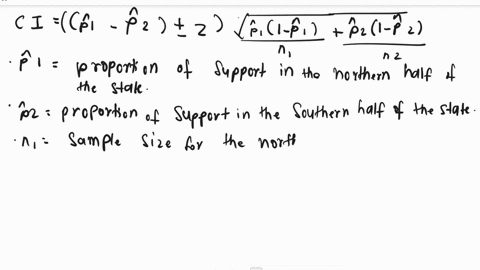 CI = ((p̂1 - p̂2) ± z) √(p̂1(1-p̂1)/n1 + p̂2(1-p̂2)/n2)
· p̂1 = proportion of Support in the northern half of
the state.
· p̂2 = proportion of Support in the Southern half of the state.
· n1 = Sample Size for the north